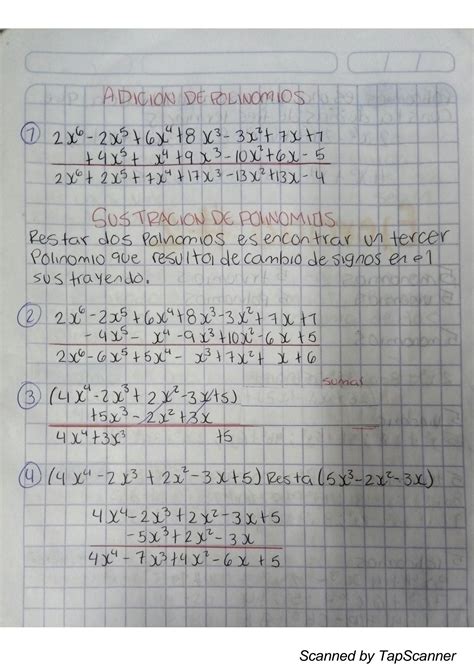 ADICION DE POLINOMIOS
① 2x⁶ - 2x⁵ + 6x⁴ + 8x³ - 3x² + 7x + 1
+ 4x⁵ + x⁴ + 9x³ - 10x² + 6x - 5
2x⁶ + 2x⁵ + 7x⁴ + 17x³ - 13x² + 13x - 4
SUSTRACION DE POLINOMIOS
Restar dos Polinomios es encontrar un tercer
Polinomio que resulta, de cambio de signos en el
sustrayendo.
② 2x⁶ - 2x⁵ + 6x⁴ + 8x³ - 3x² + 7x + 1
- 4x⁵ - x⁴ - 9x³ + 10x² - 6x + 5
2x⁶ - 6x⁵ + 5x⁴ - x³ + 7x² + x + 6
sumar
③ (4x⁴ - 2x³ + 2x² - 3x + 5)
+ 5x³ - 2x² + 3x
4x⁴ + 3x³ + 5
④ (4x⁴ - 2x³ + 2x² - 3x + 5) Resta (5x³ - 2x² - 3x)
4x⁴ - 2x³ + 2x² - 3x + 5
- 5x³ + 2x² - 3x
4x⁴ - 7x³ + 4x² - 6x + 5
Scanned by TapScanner